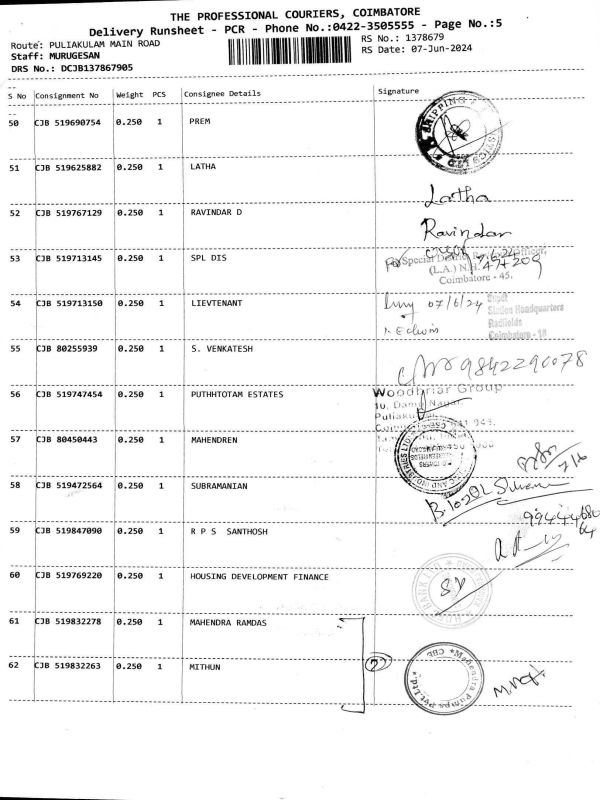 THE PROFESSIONAL COURIERS, COIMBATORE
Delivery Runsheet - PCR - Phone No.:0422-3505555 - Page No.:5
Route: PULIAKULAM MAIN ROAD
RS No.: 1378679
Staff: MURUGESAN
RS Date: 07-Jun-2024
DRS No.: DCJB137867905
S No Consignment No Weight PCS Consignee Details Signature
50 CJB 519690754 0.250 1 PREM
51 CJB 519625882 0.250 1 LATHA
Latha
52 CJB 519767129 0.250 1 RAVINDAR D
Ravindar
53 CJB 519713145 0.250 1 SPL DIS
(L.A.) N.H.
Coimbatore - 45.
54 CJB 519713150 0.250 1 LIEVTENANT
07/6/24
Station Headquarters
Redfields
Coimbatore - 18
55 CJB 80255939 0.250 1 S. VENKATESH
9842290078
56 CJB 519747454 0.250 1 PUTHHTOTAM ESTATES
Woodbriar Group
57 CJB 80450443 0.250 1 MAHENDREN
58 CJB 519472564 0.250 1 SUBRAMANIAN
59 CJB 519847090 0.250 1 R P S SANTHOSH
60 CJB 519769220 0.250 1 HOUSING DEVELOPMENT FINANCE
61 CJB 519832278 0.250 1 MAHENDRA RAMDAS
62 CJB 519832263 0.250 1 MITHUN